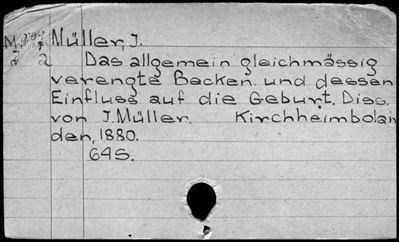 Müller, J.
Das allgemein gleichmässig
verengte Becken und dessen
Einfluss auf die Geburt. Diss.
von J. Müller. Kirchheimbolan
den, 1880.
64S.